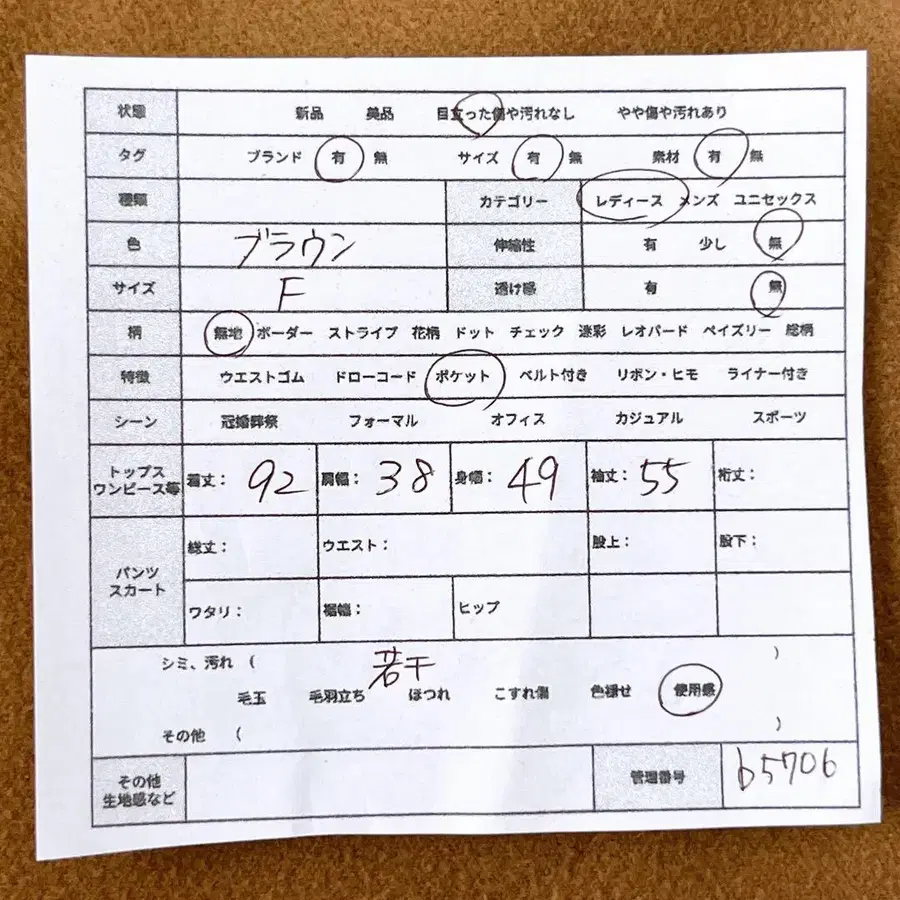 状態 新品 美品 目立った傷や汚れなし やや傷や汚れあり
タグ ブランド 有 無 サイズ 有 無 素材 有 無
種類 カテゴリー レディース メンズ ユニセックス
色 ブラウン 伸縮性 有 少し 無
サイズ F 透け感 有 無
柄 無地 ボーダー ストライプ 花柄 ドット チェック 迷彩 レオパード ペイズリー 総柄
特徴 ウエストゴム ドローコード ポケット ベルト付き リボン・ヒモ ライナー付き
シーン 冠婚葬祭 フォーマル オフィス カジュアル スポーツ
トップス
ワンピース等 着丈: 92 肩幅: 38 身幅: 49 袖丈: 55 裄丈:
パンツ
スカート 総丈: ウエスト: 股上: 股下:
ワタリ: 裾幅: ヒップ
シミ、汚れ ( 若干 )
毛玉 毛羽立ち ほつれ こすれ傷 色褪せ 使用感
その他 ( )
その他
生地感など 管理番号 b5706